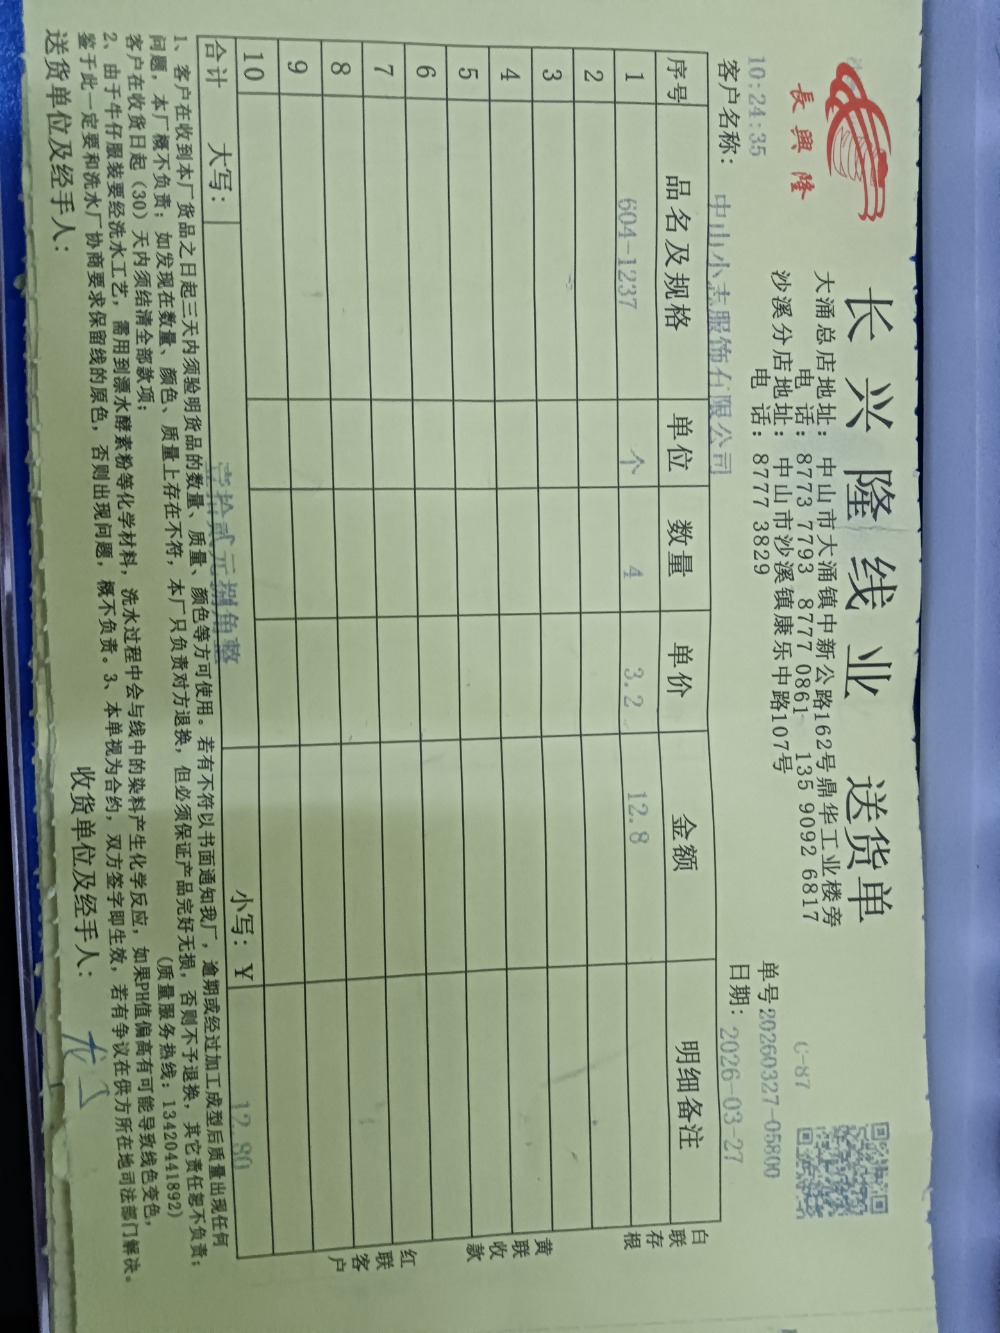 長興隆
长兴隆线业 送货单
大涌总店地址：中山市大涌镇中新公路162号鼎华工业楼旁
电 话：8773 7793 8777 0861 135 9092 6817
沙溪分店地址：中山市沙溪镇康乐中路107号
电 话：8777 3829
C-87
单号:20260327-05800
10:24:35
日期：2026-03-27
客户名称：中山小志服饰有限公司
序号 品名及规格 单位 数量 单价 金额 明细备注
1 604-1237 个 4 3.2 12.8
2
3
4
5
6
7
8
9
10
合计 大写：壹拾贰元捌角整 小写：¥ 12.80
白联存根
黄联收款
红联客户
1、客户在收到本厂货品之日起三天内须验明货品的数量、质量、颜色等方可使用。若有不符以书面通知我厂，逾期或经过加工成型后质量出现任何
问题，本厂概不负责；如发现在数量、颜色、质量上存在不符，本厂只负责对方退换，但必须保证产品完好无损，否则不予退换，其它责任恕不负责；
客户在收货日起（30）天内须结清全部款项；（质量服务热线：13420441892）
2、由于牛仔服装要经洗水工艺，需用到漂水酵素粉等化学材料，洗水过程中会与线中的染料产生化学反应，如果PH值偏高有可能导致线色变色，
鉴于此一定要和洗水厂协商要求保留线的原色，否则出现问题，概不负责。3、本单视为合约，双方签字即生效，若有争议在供方所在地司法部门解决。
送货单位及经手人： 收货单位及经手人：